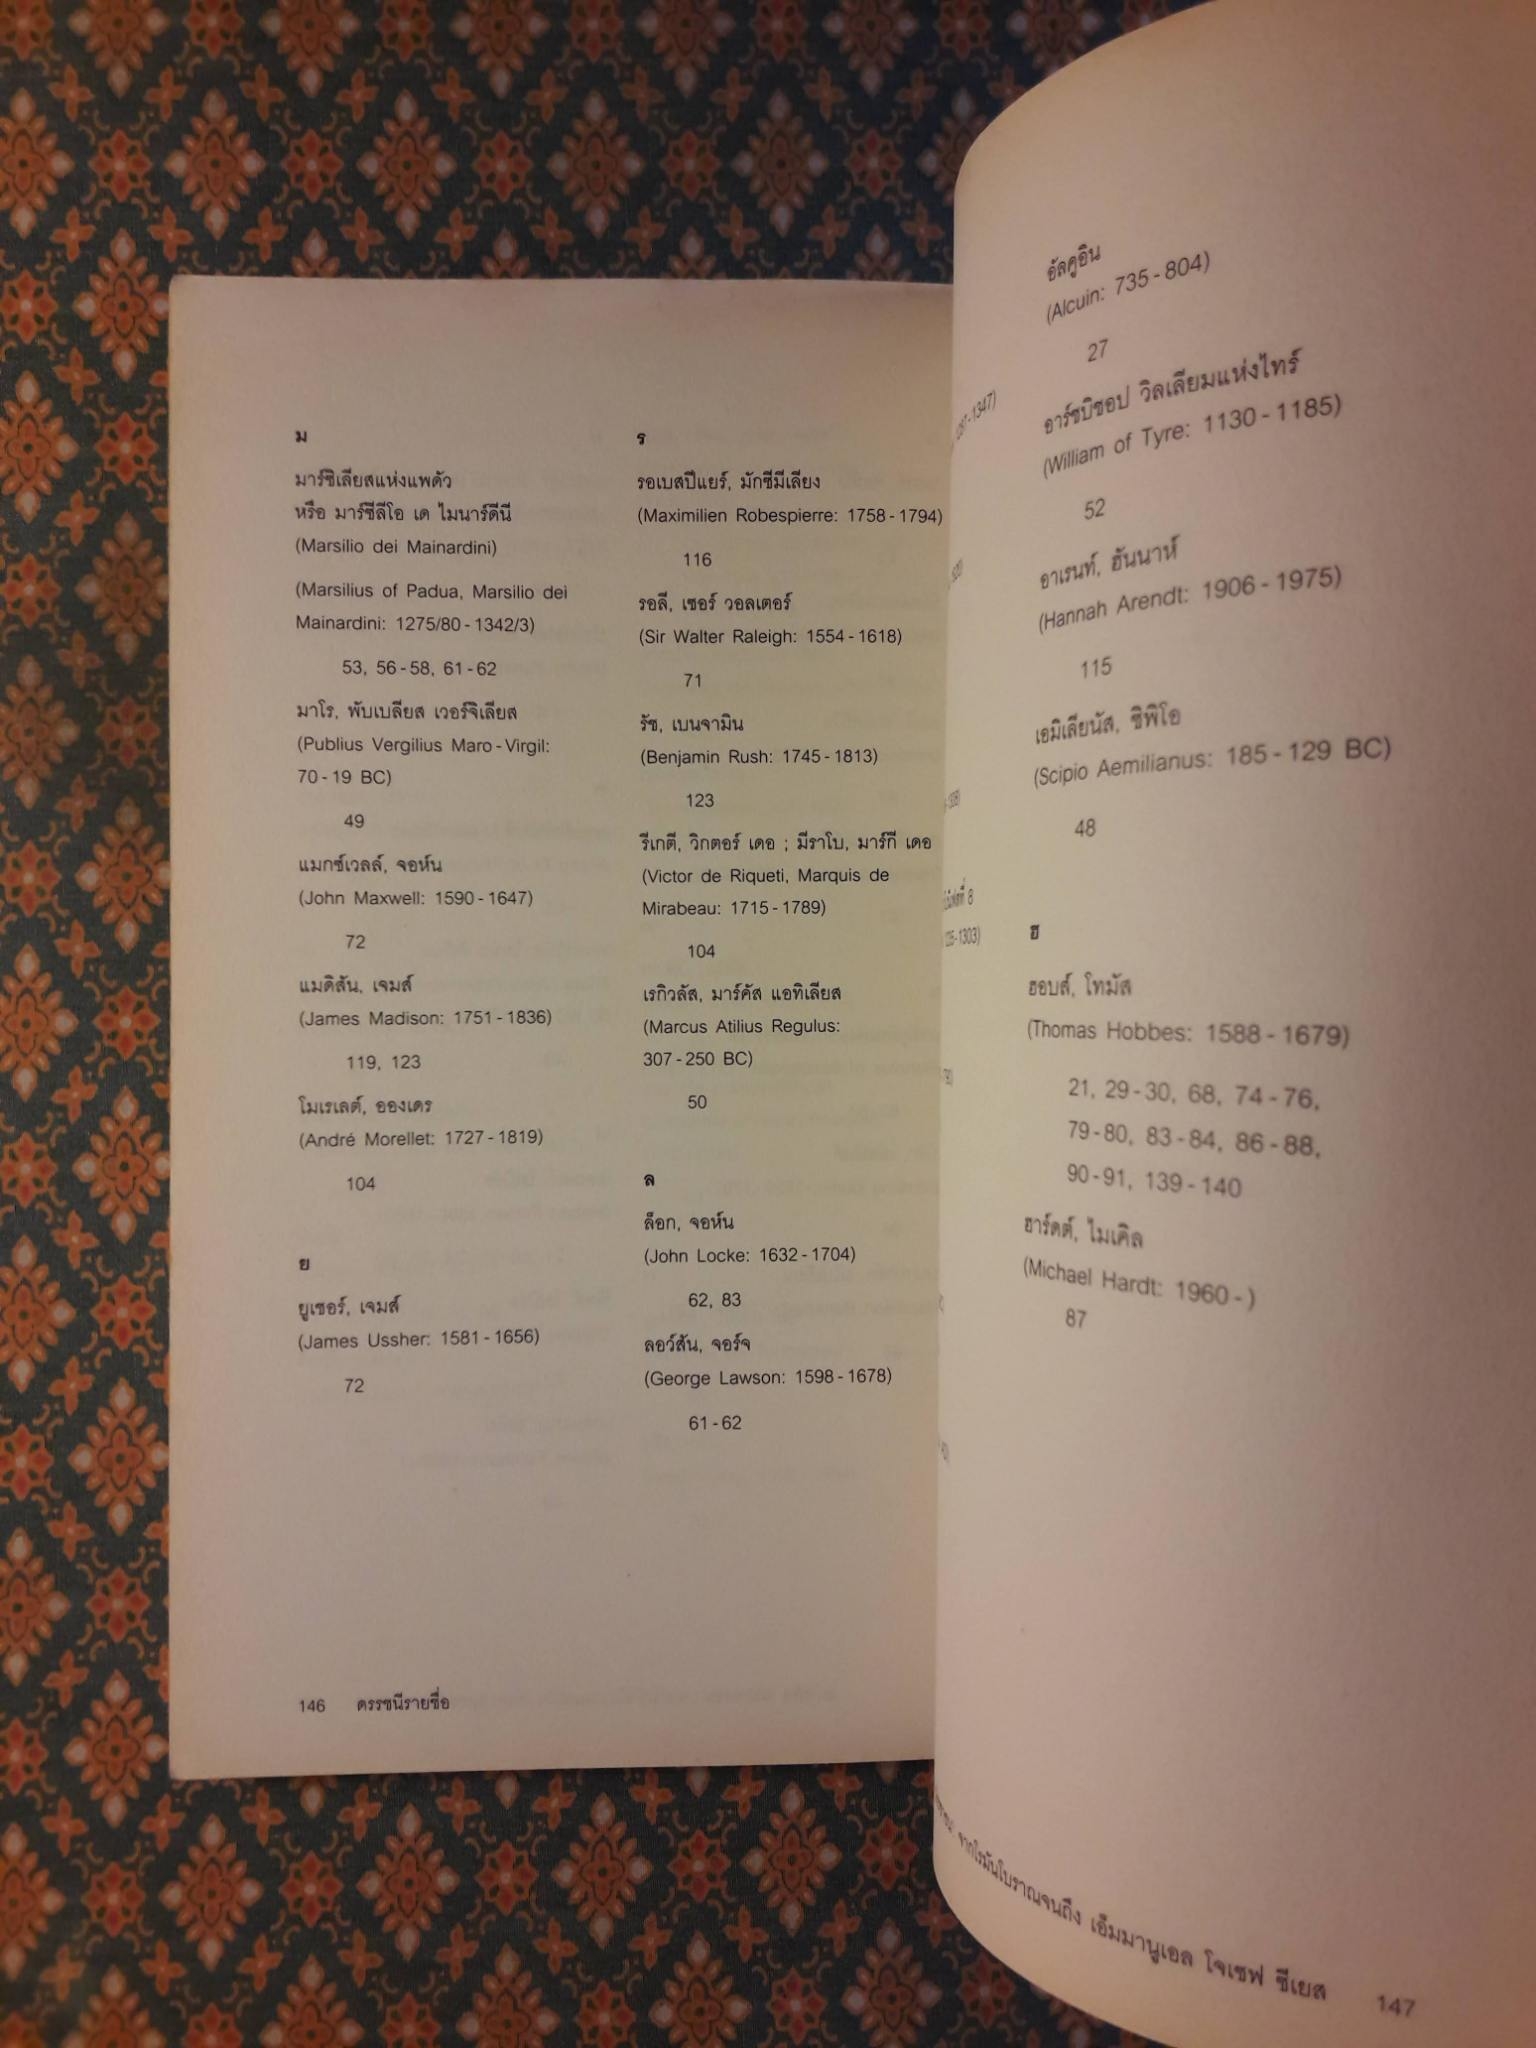 ม
มาร์ซิเลียสแห่งแพดัว
หรือ มาร์ซีลีโอ เด ไมนาร์ดีนี
(Marsilio dei Mainardini)
(Marsilius of Padua, Marsilio dei
Mainardini: 1275/80 - 1342/3)
53, 56 - 58, 61 - 62
มาโร, พับเบลียส เวอร์จิเลียส
(Publius Vergilius Maro - Virgil:
70 - 19 BC)
49
แมกซ์เวลล์, จอห์น
(John Maxwell: 1590 - 1647)
72
แมดิสัน, เจมส์
(James Madison: 1751 - 1836)
119, 123
โมเรเลต์, อองเดร
(André Morellet: 1727 - 1819)
104
ย
ยูเชอร์, เจมส์
(James Ussher: 1581 - 1656)
72
146 ดรรชนีรายชื่อ
ร
รอเบสปิแยร์, มักซีมีเลียง
(Maximilien Robespierre: 1758 - 1794)
116
รอลี, เซอร์ วอลเตอร์
(Sir Walter Raleigh: 1554 - 1618)
71
รัช, เบนจามิน
(Benjamin Rush: 1745 - 1813)
123
รีเกตี, วิกตอร์ เดอ ; มีราโบ, มาร์กี เดอ
(Victor de Riqueti, Marquis de
Mirabeau: 1715 - 1789)
104
เรกิวลัส, มาร์คัส แอทิเลียส
(Marcus Atilius Regulus:
307 - 250 BC)
50
ล
ล็อก, จอห์น
(John Locke: 1632 - 1704)
62, 83
ลอว์สัน, จอร์จ
(George Lawson: 1598 - 1678)
61 - 62
อัลคูอิน
(Alcuin: 735 - 804)
27
อาร์ชบิชอป วิลเลียมแห่งไทร์
(William of Tyre: 1130 - 1185)
52
อาเรนท์, ฮันนาห์
(Hannah Arendt: 1906 - 1975)
115
เอมิเลียนัส, ซิพิโอ
(Scipio Aemilianus: 185 - 129 BC)
48
ฮ
ฮอบส์, โทมัส
(Thomas Hobbes: 1588 - 1679)
21, 29 - 30, 68, 74 - 76,
79 - 80, 83 - 84, 86 - 88,
90 - 91, 139 - 140
ฮาร์ดต์, ไมเคิล
(Michael Hardt: 1960 - )
87
จากโรมันโบราณจนถึง เอ็มมานูเอล โจเซฟ ซีเยส 147